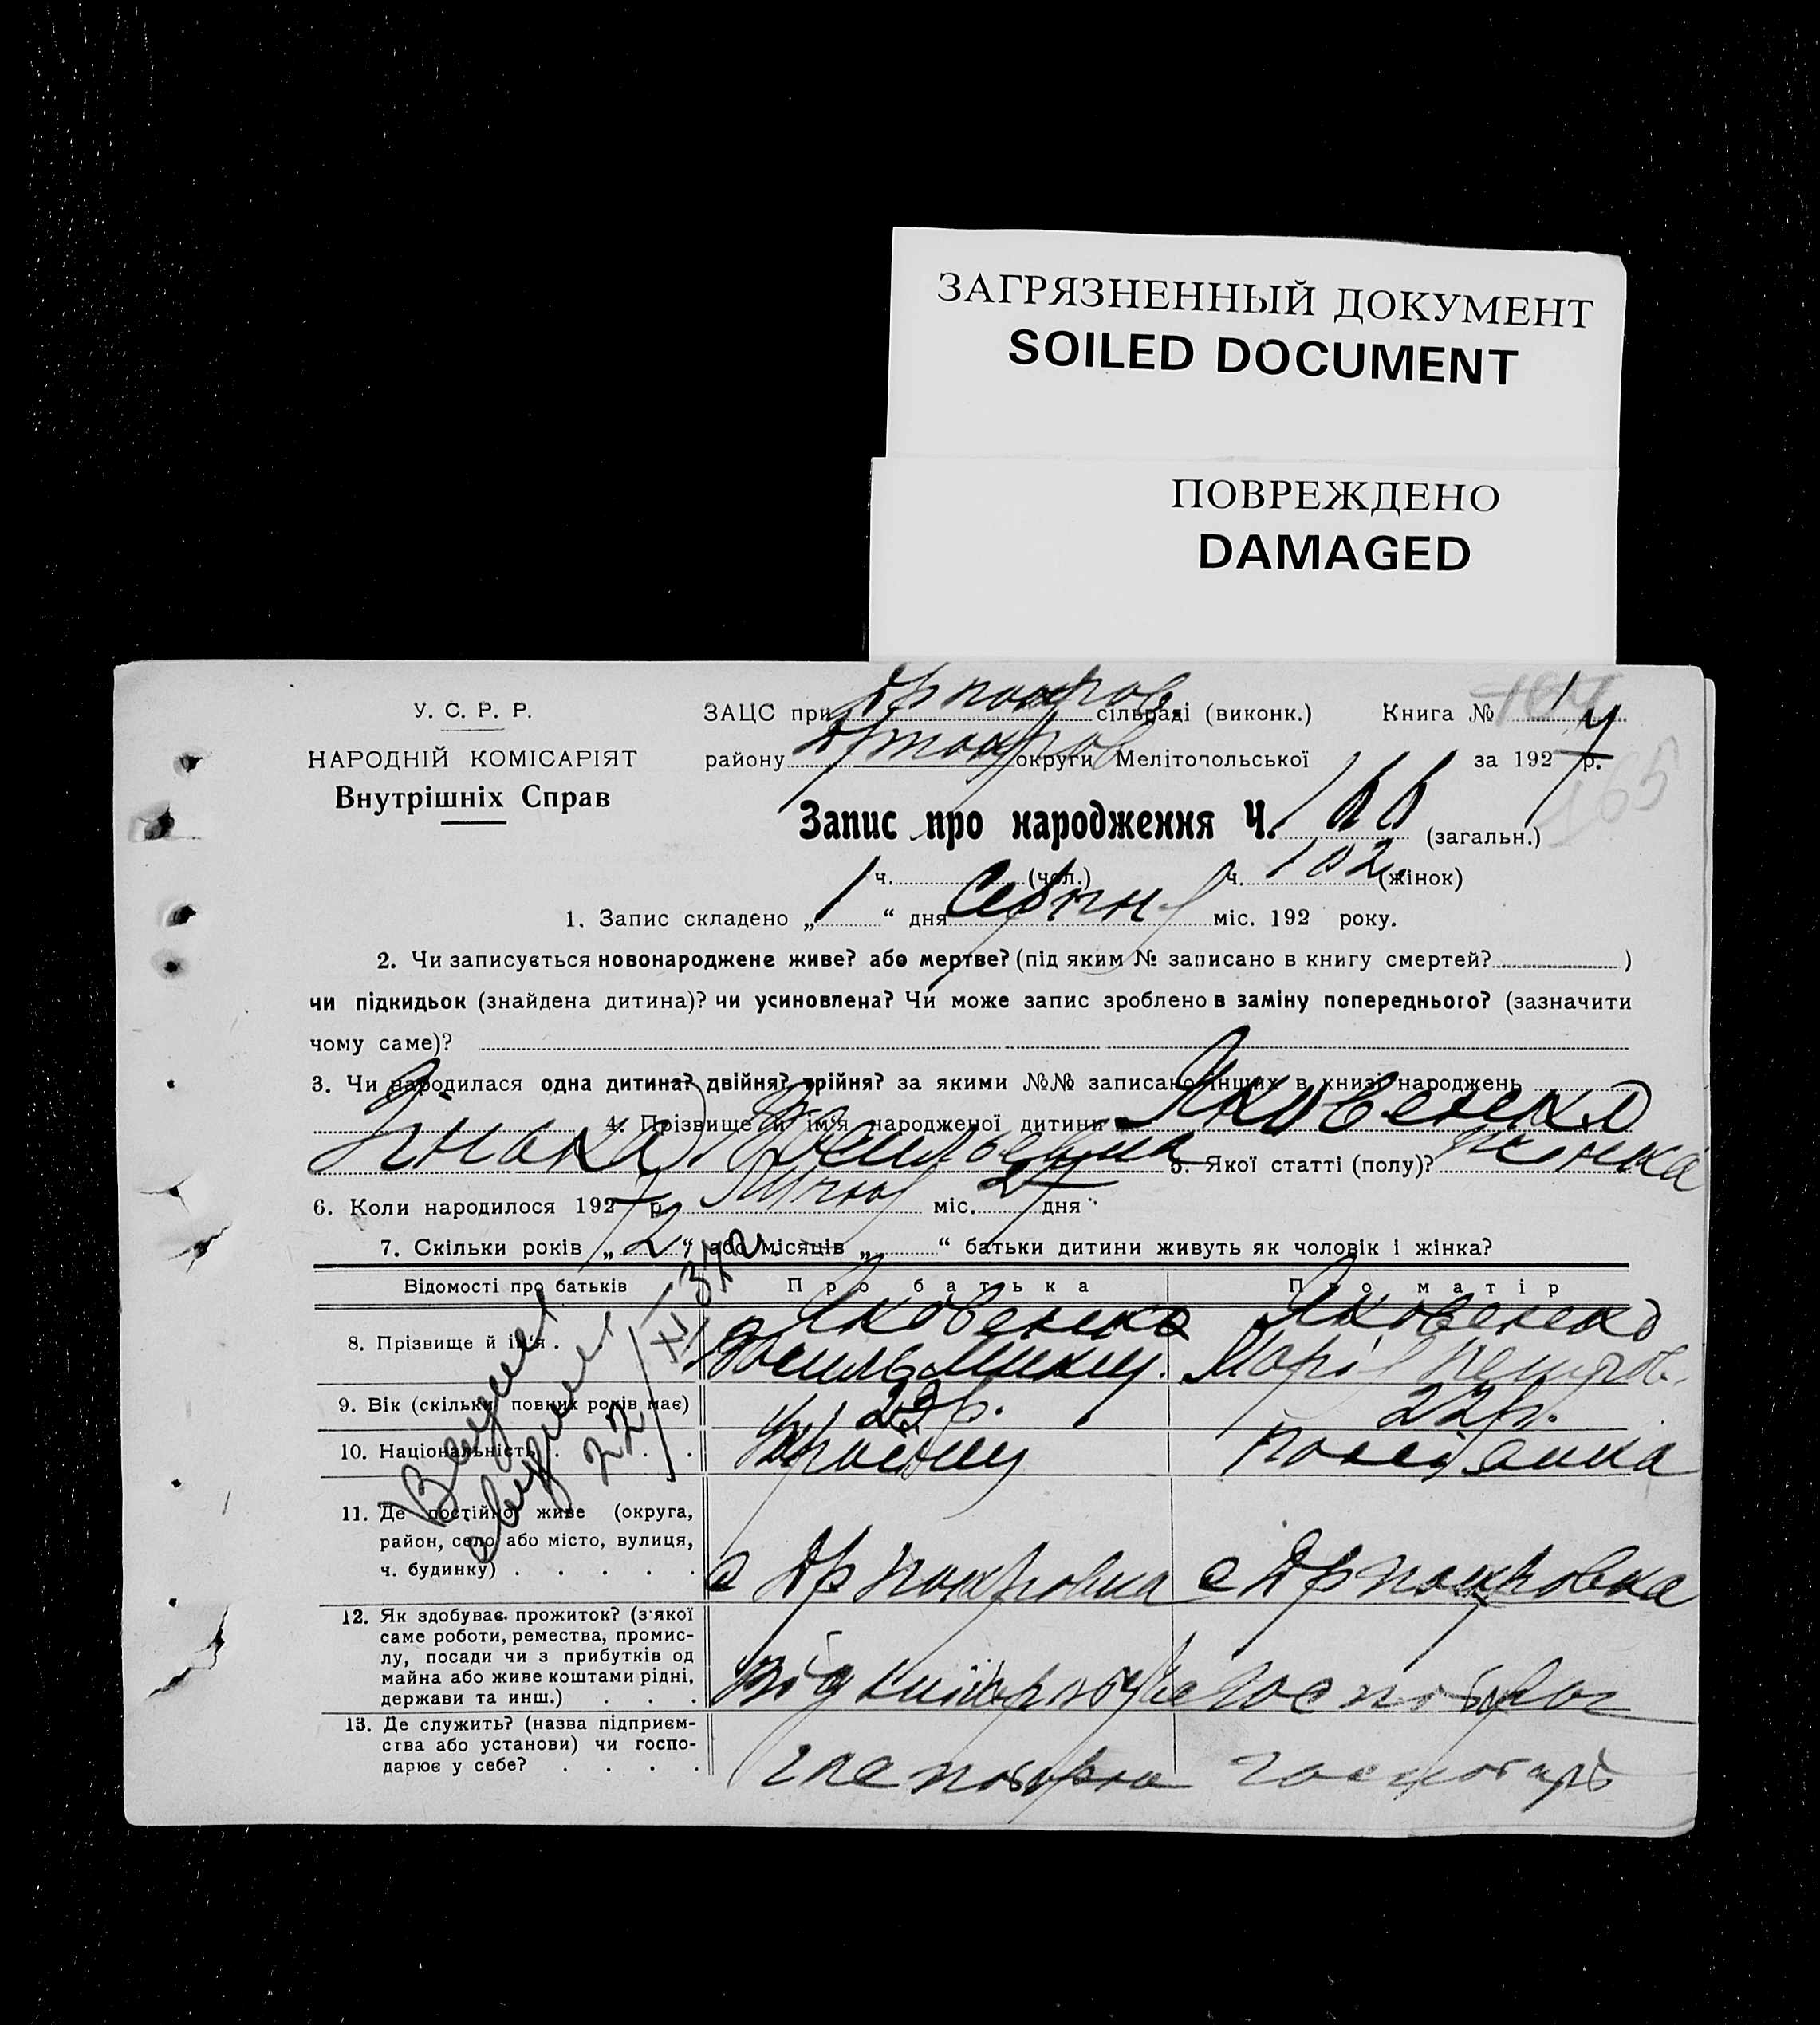 ЗАГРЯЗНЕННЫЙ ДОКУМЕНТ
SOILED DOCUMENT
ПОВРЕЖДЕНО
DAMAGED
У. С. Р. Р.
НАРОДНІЙ КОМІСАРІЯТ
Внутрішніх Справ
ЗАЦС при сільраді (виконк.) Книга № 1
району округи Мелітопольської за 1927 р.
165
Запис про народження Ч. 166 (загальн.)
ч. (чол.) ч. 102 (жінок)
1. Запис складено „ 1 “ дня Серпня міс. 192 року.
2. Чи записується новонароджене живе? або мертве? (під яким № записано в книгу смертей? )
чи підкидьок (знайдена дитина)? чи усиновлена? Чи може запис зроблено в заміну попереднього? (зазначити
чому саме)?
3. Чи народилася одна дитина? двійня? трійня? за якими №№ записано інших в книзі народжень
4. Прізвище й ім'я народженої дитини Яковенко
5. Якої статті (полу)? жінка
6. Коли народилося 1927 р. міс. 27 дня
7. Скільки років „ 2 “ або місяців „ “ батьки дитини живуть як чоловік і жінка?
Відомості про батьків Про батька Про матір
8. Прізвище й ім'я . Яковенко Яковенко
Василь Марія
9. Вік (скільки повних років має) 22р.
10. Національність . . . .
11. Де постійно живе (округа,
район, село або місто, вулиця,
ч. будинку) . . . . . с Др покровка с Др покровка
12. Як здобуває прожиток? (з якої
саме роботи, ремества, промис-
лу, посади чи з прибутків од
майна або живе коштами рідні,
держави та инш.) . . . Від
13. Де служить? (назва підприєм-
ства або установи) чи госпо-
дарює у себе? . . . .